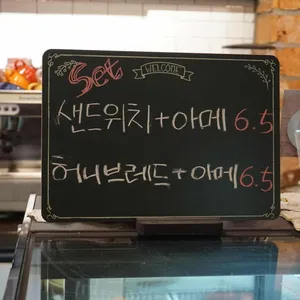 Set WELCOME
샌드위치+아메 6.5
허니브레드+아메 6.5